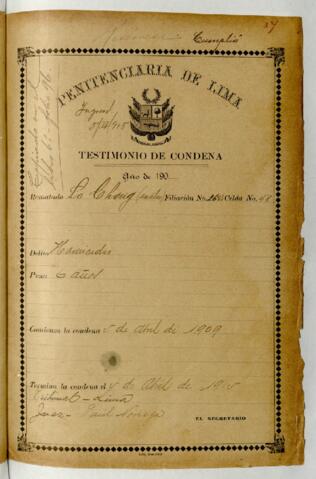 Cumplió
27
PENITENCIARIA DE LIMA
TESTIMONIO DE CONDENA
Año de 190
Rematado Lo Chong Filiación No. Celda No.
Delito Homicidio
Pena 6 años
Comienza la condena 5 de Abril de 1909
Termina la condena el 4 de Abril de 1915
Tribunal - Lima
Juez - Raúl Noriega
EL SECRETARIO